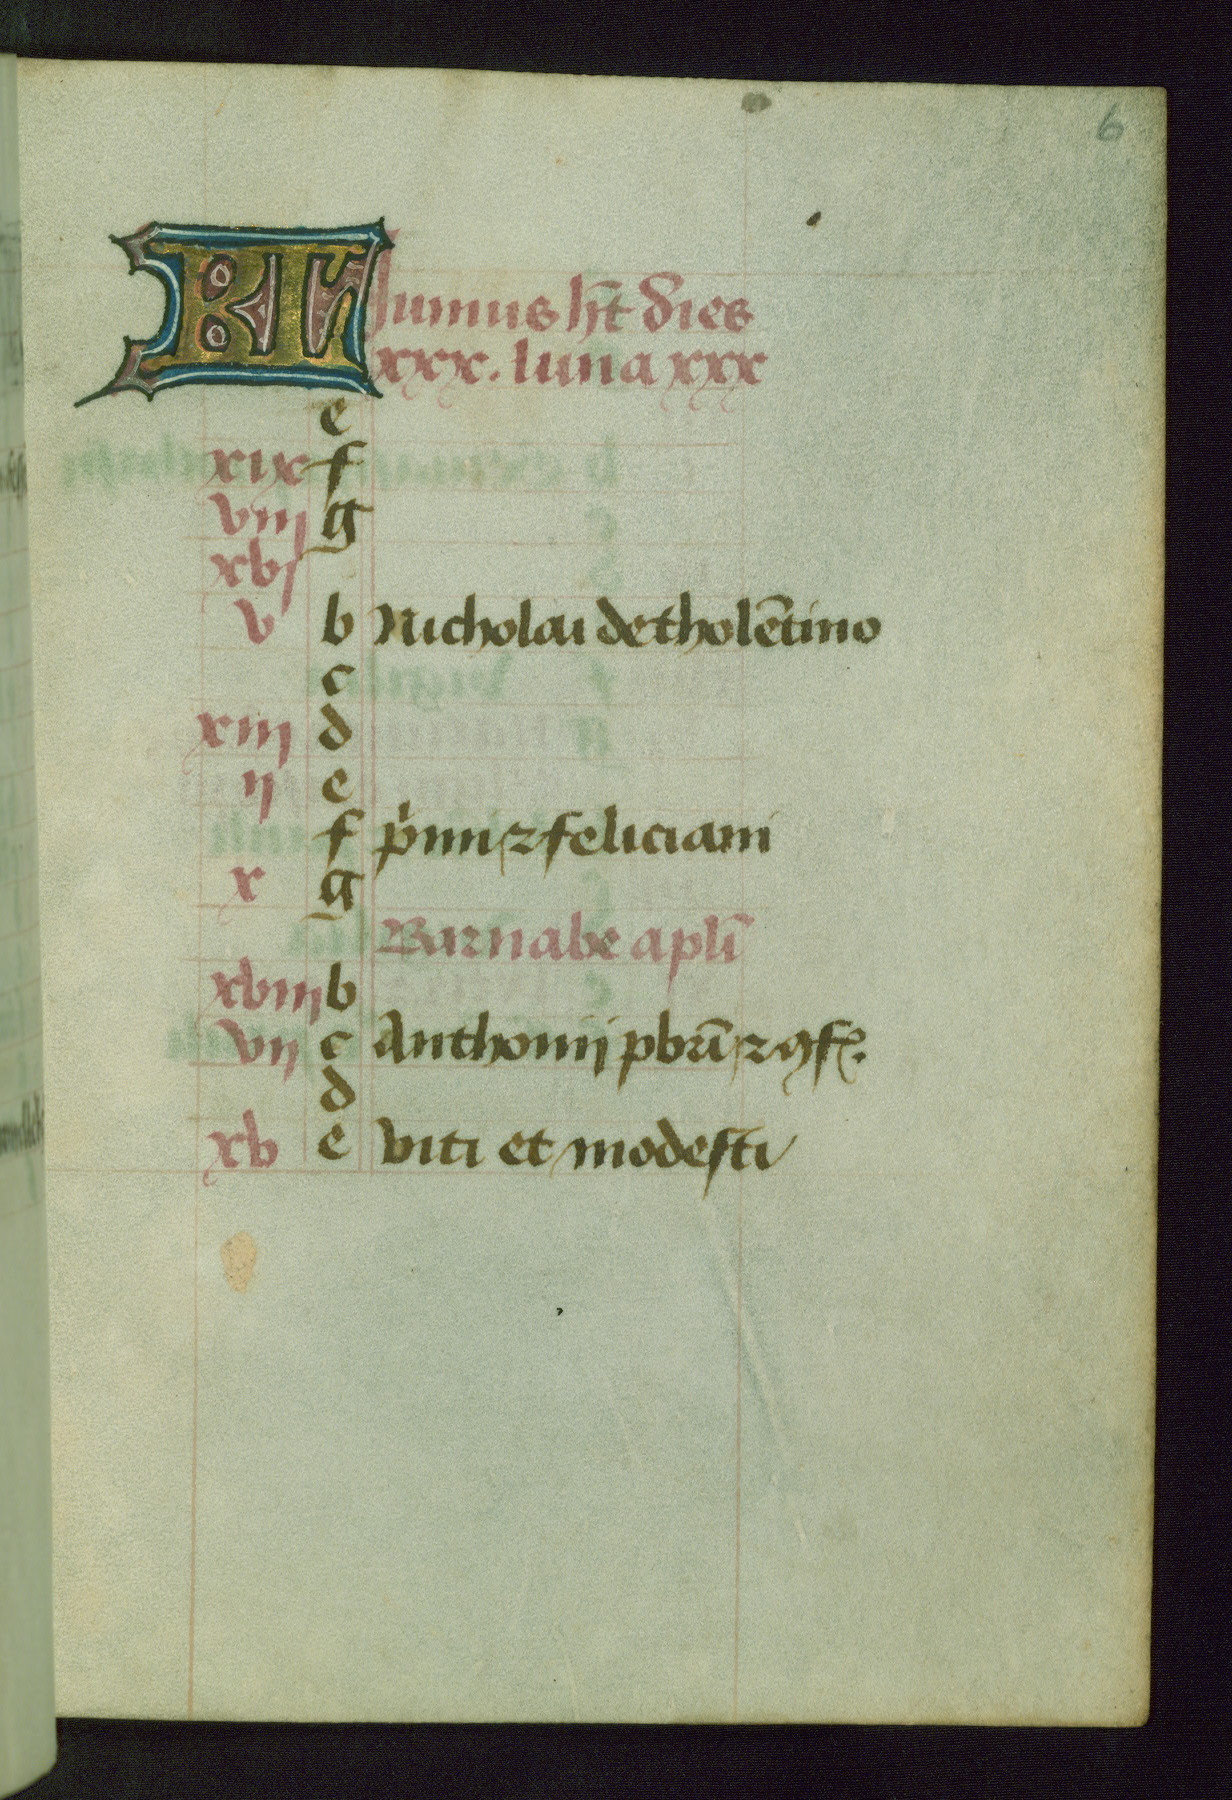 6
KL Junius ht̄ dies
xxx. luna xxx
e
xix f
viij g
xvj
v b Nicholai de tholētino
c
xiij d
ij e
f pͥmi ⁊ feliciani
x g
Barnabe apl̄i
xviij b
vij c Anthonij pbrī ⁊ ꝯf.
d
xv e viti et modesti